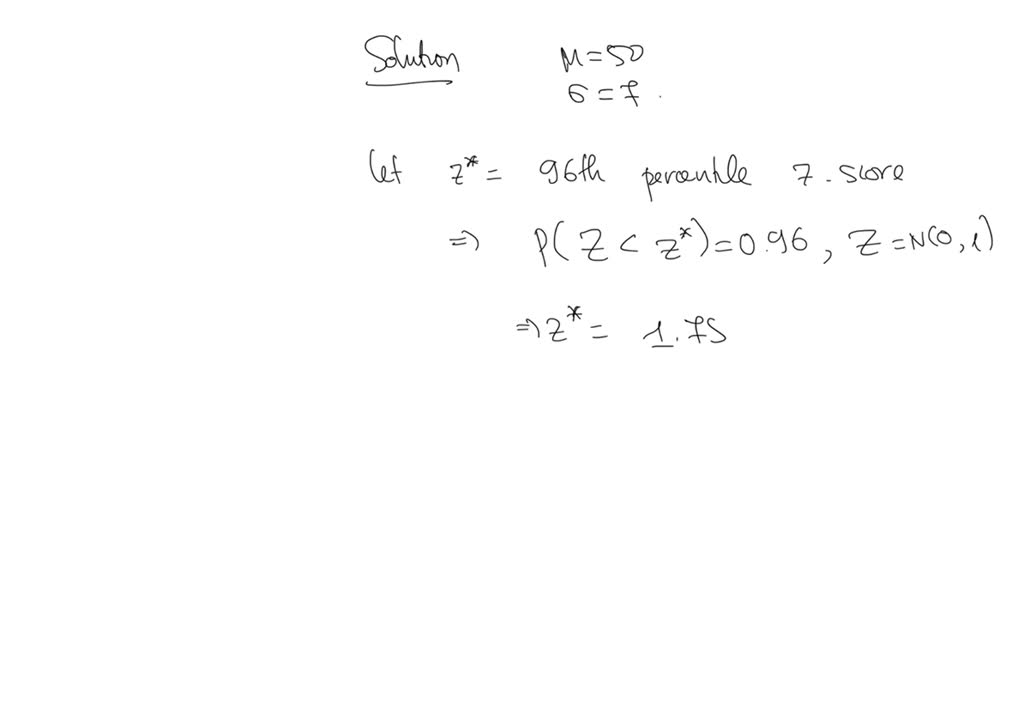 Solution μ=50
σ=7.
let z*= 96th percentile z-score
=> P(Z < z*)=0.96, Z=N(0,1)
=> z*= 1.75